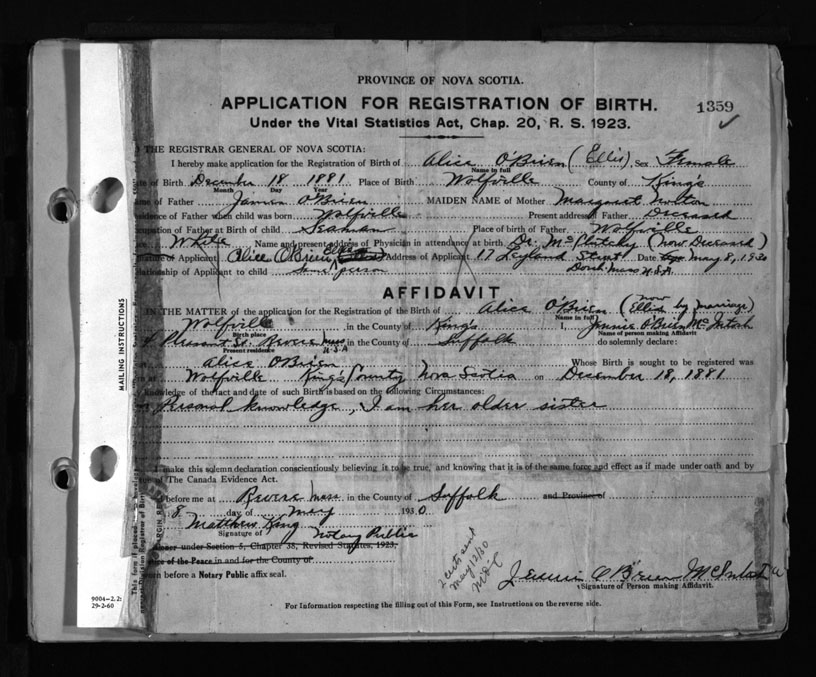 PROVINCE OF NOVA SCOTIA.
APPLICATION FOR REGISTRATION OF BIRTH. 1359
Under the Vital Statistics Act, Chap. 20, R. S. 1923.
THE REGISTRAR GENERAL OF NOVA SCOTIA:
I hereby make application for the Registration of Birth of Alice O'Brien (Ellis) Sex Female
Name in full
of Birth December 18 1881 Place of Birth Wolfville County of King's
Month Day Year
of Father James O'Brien MAIDEN NAME of Mother Margaret
idence of Father when child was born Wolfville Present address of Father Deceased
upation of Father at Birth of child Seaman Place of birth of Father Wolfville
White Name and present address of Physician in attendance at birth Dr. (Now Deceased)
of Applicant Alice O'Brien Ellis Address of Applicant 17 Leyland Street Date May 8, 1930
Dorch. Mass U.S.A.
lationship of Applicant to child same person
AFFIDAVIT
IN THE MATTER of the application for the Registration of Birth of Alice O'Brien (now Ellis by marriage)
Name in full
Wolfville, in the County of King's I, Jennie O'Brien McIntosh
Birth place Name of person making Affidavit
Pleasant St. Revere Mass U.S.A in the County of Suffolk do solemnly declare:
Present residence
Alice O'Brien Whose Birth is sought to be registered was
Wolfville King's County Nova Scotia on December 18, 1881
knowledge of the fact and date of such Birth is based on the following Circumstances:
Personal knowledge, I am her older sister
I make this solemn declaration conscientiously believing it to be true, and knowing that it is of the same force and effect as if made under oath and by
of The Canada Evidence Act.
before me at Revere Mass. in the County of Suffolk and Province of
8 day of May 1930
Matthew King Notary Public
Signature of
under Section 5, Chapter 38, Revised Statutes, 1923.
of the Peace in and for the County of
before a Notary Public affix seal.
2 certs sent
May 12/30
Jennie O'Brien McIntosh
Signature of Person making Affidavit.
For Information respecting the filling out of this Form, see Instructions on the reverse side.
MAILING INSTRUCTIONS
9004-2.2:
29-2-60